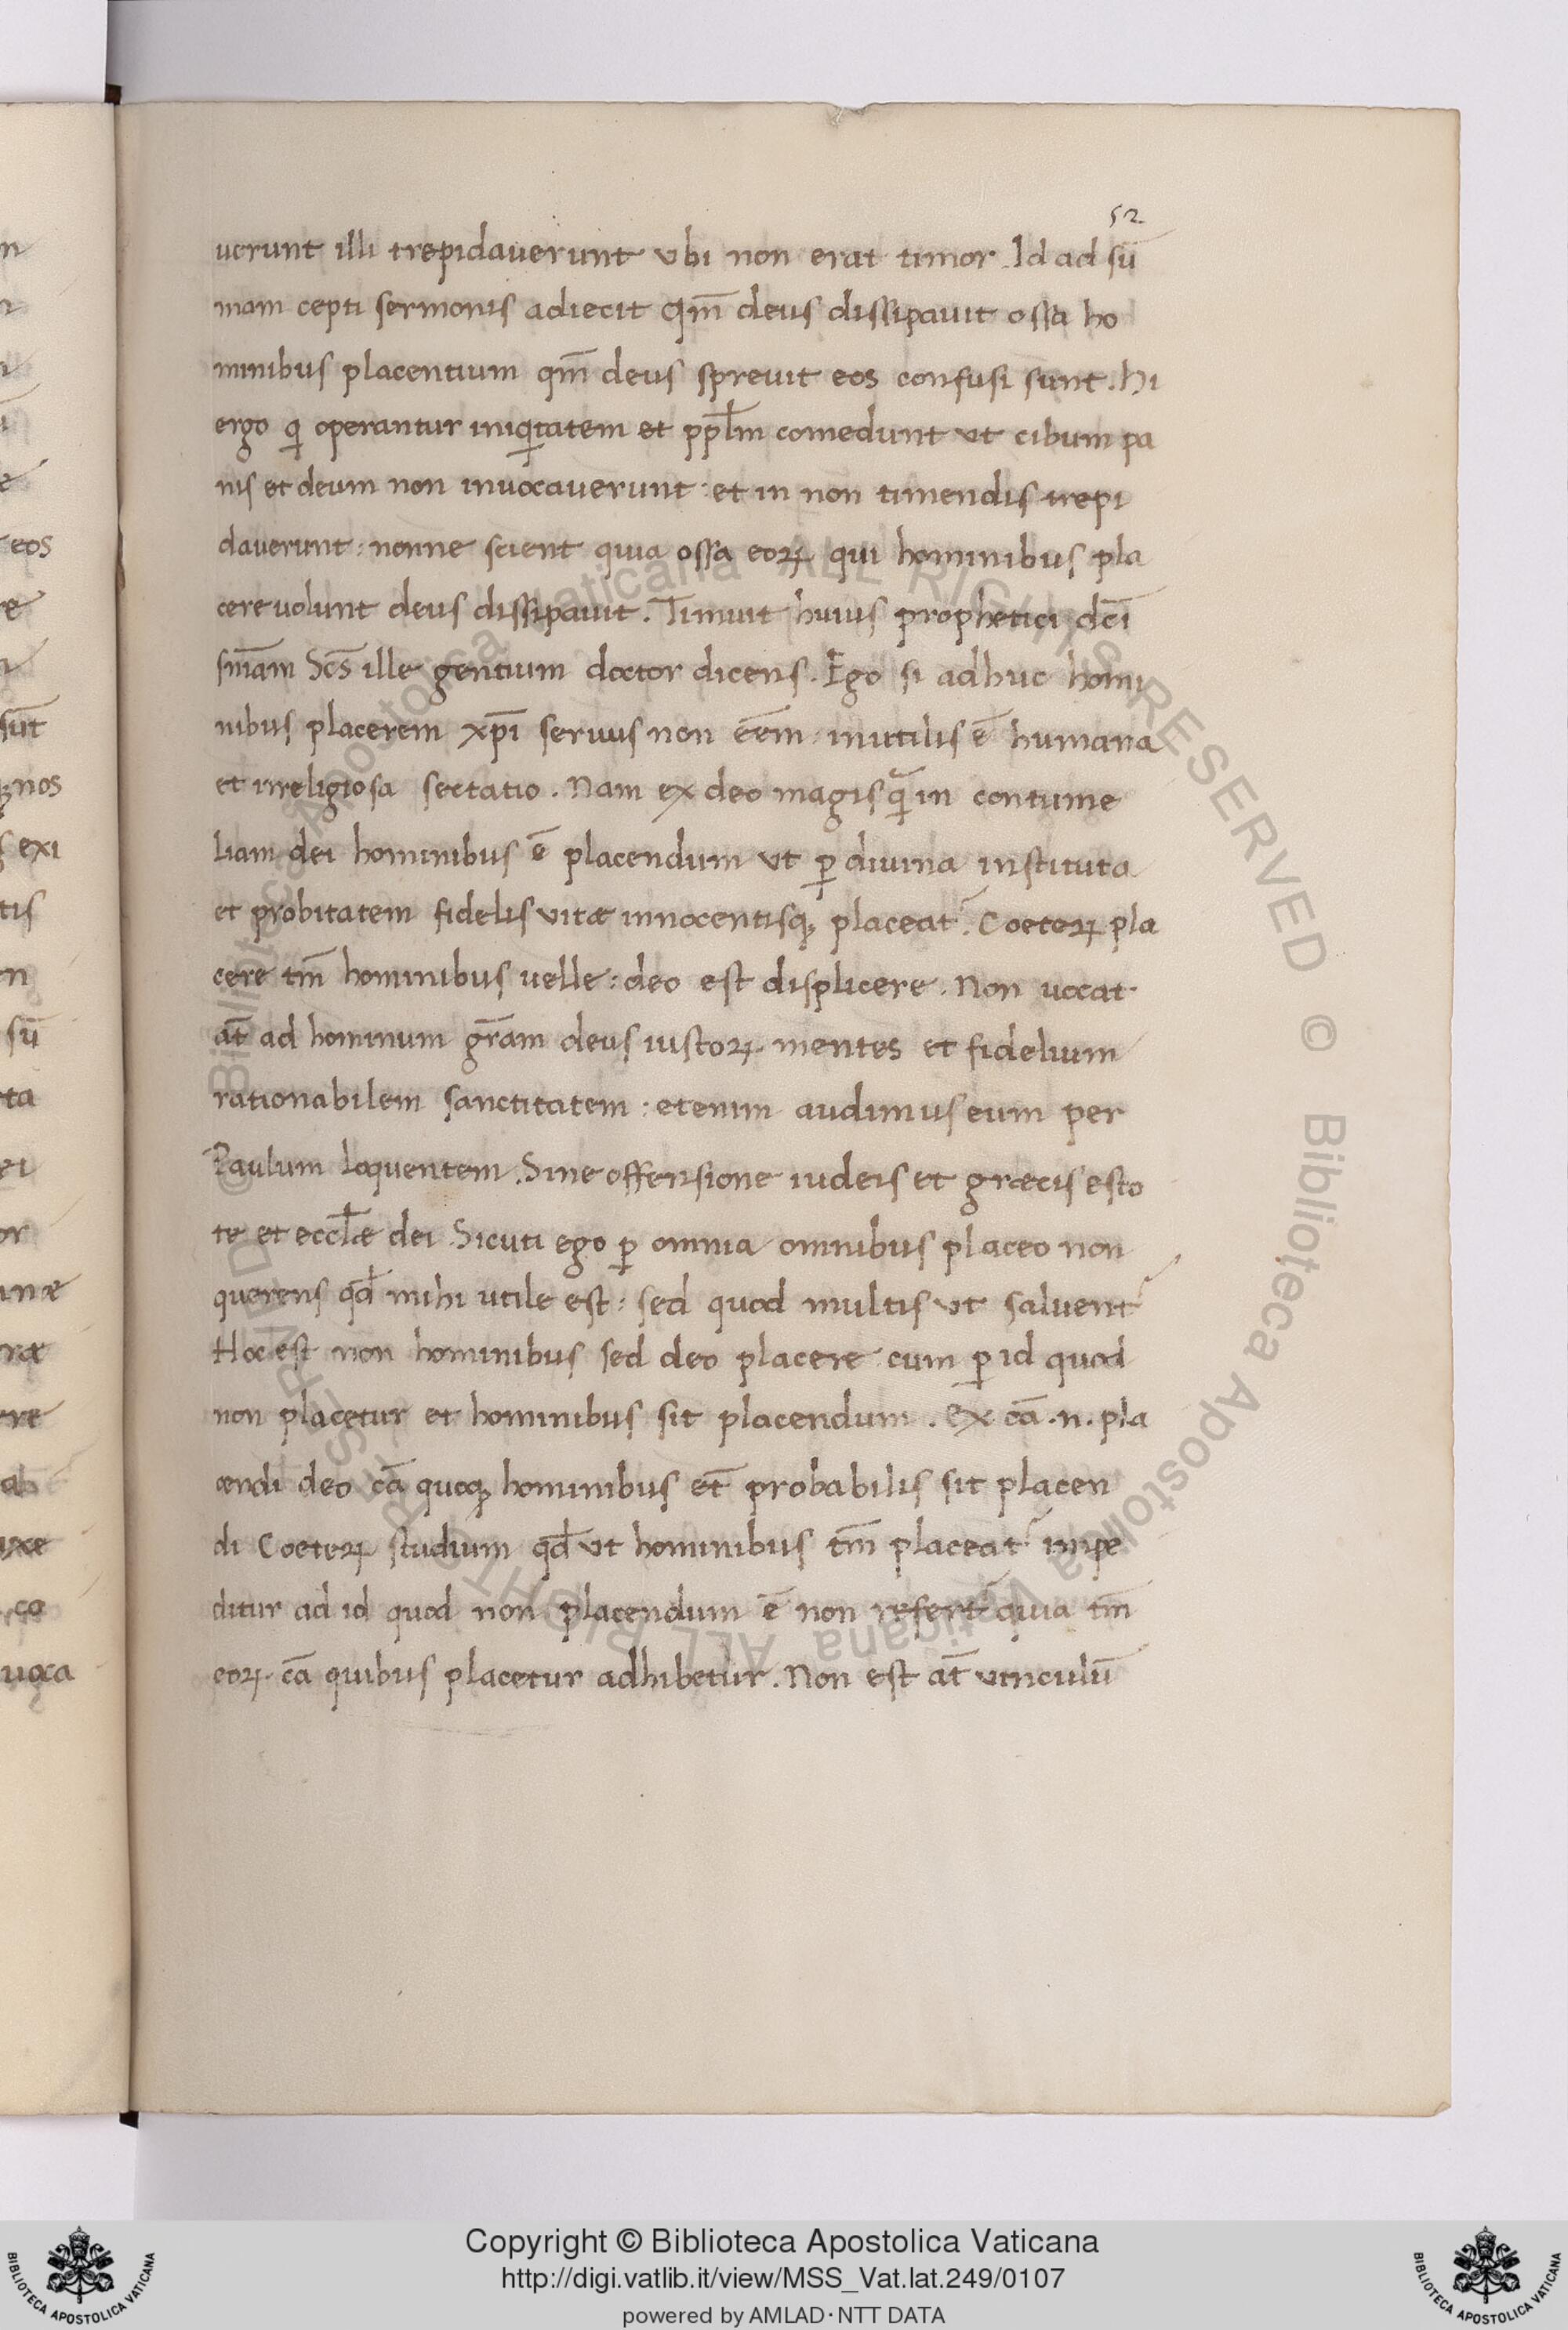 52
uerunt illi trepidauerunt vbi non erat timor. Id ad sū
mam cepti sermonis adiecit Qm̄ deus dissipauit ossa ho
minibus placentium qm̄ deus spreuit eos confusi sunt. Hi
ergo qi operantur iniqitatem et pplm comedunt vt cibum pa
nis et deum non inuocauerunt: et in non timendis trepi
dauerunt: nonne scient quia ossa eoꝝ qui hominibus pla
cere uolunt deus dissipauit. Timuit huius prophetici dc̄i
sn̄iam Sc̄s ille gentium doctor dicens. Ego si adhuc homi
nibus placerem xp̄i seruus non eēm: inutilis ē humana
et irreligiosa sectatio. Nam ex deo magis qm̄ in contume
liam dei hominibus ē placendum vt ꝑ diuina instituta
et probitatem fidelis vitæ innocentisqꝫ placeat᷑. Coeteꝝ pla
cere tm̄ hominibus uelle: deo est displicere. Non uocat
at̄ ad hominum gr̄am deus iustoꝝ mentes et fidelium
rationabilem sanctitatem: etenim audimus eum per
Paulum loquentem. Sine offensione iudeis et græcis esto
te et ecclæ dei Sicuti ego ꝑ omnia omnibus placeo non
querens qd mihi utile est: sed quod multis vt saluent᷑
Hoc est non hominibus sed deo placere cum ꝑ id quod
non placetur et hominibus sit placendum. Ex cā .n. pla
cendi deo cā quoqꝫ hominibus et̄ probabilis sit placen
di Coeteꝝ studium qd vt hominibus tm̄ placeat᷑ impe
ditur ad id quod non placendum ē non refert quia tm̄
eoꝝ cā quibus placetur adhibetur. Non est at̄ vinculū
eos
re
sūt
nos
exi
tis
en
sū
ta
ei
or
inæ
ræ
ere
co
uoca
© Biblioteca Apostolica Vaticana ALL RIGHTS RESERVED © Biblioteca Apostolica Vaticana ALL RIGHTS RESERVED
Copyright © Biblioteca Apostolica Vaticana
http://digi.vatlib.it/view/MSS_Vat.lat.249/0107
powered by AMLAD·NTT DATA
BIBLIOTECA APOSTOLICA VATICANA
BIBLIOTECA APOSTOLICA VATICANA